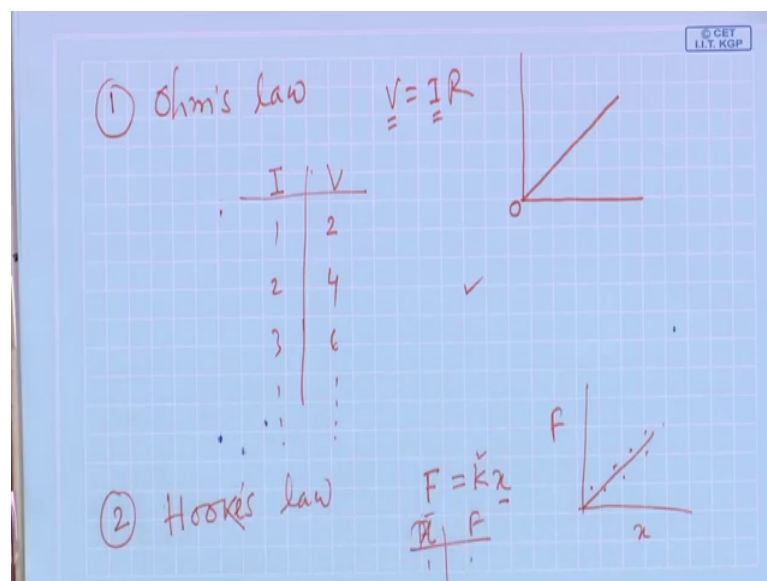 © CET
I.I.T. KGP
① Ohm's law V = IR
I V
1 2
2 4
3 6
O
② Hooke's law F = kx
x F
F
x